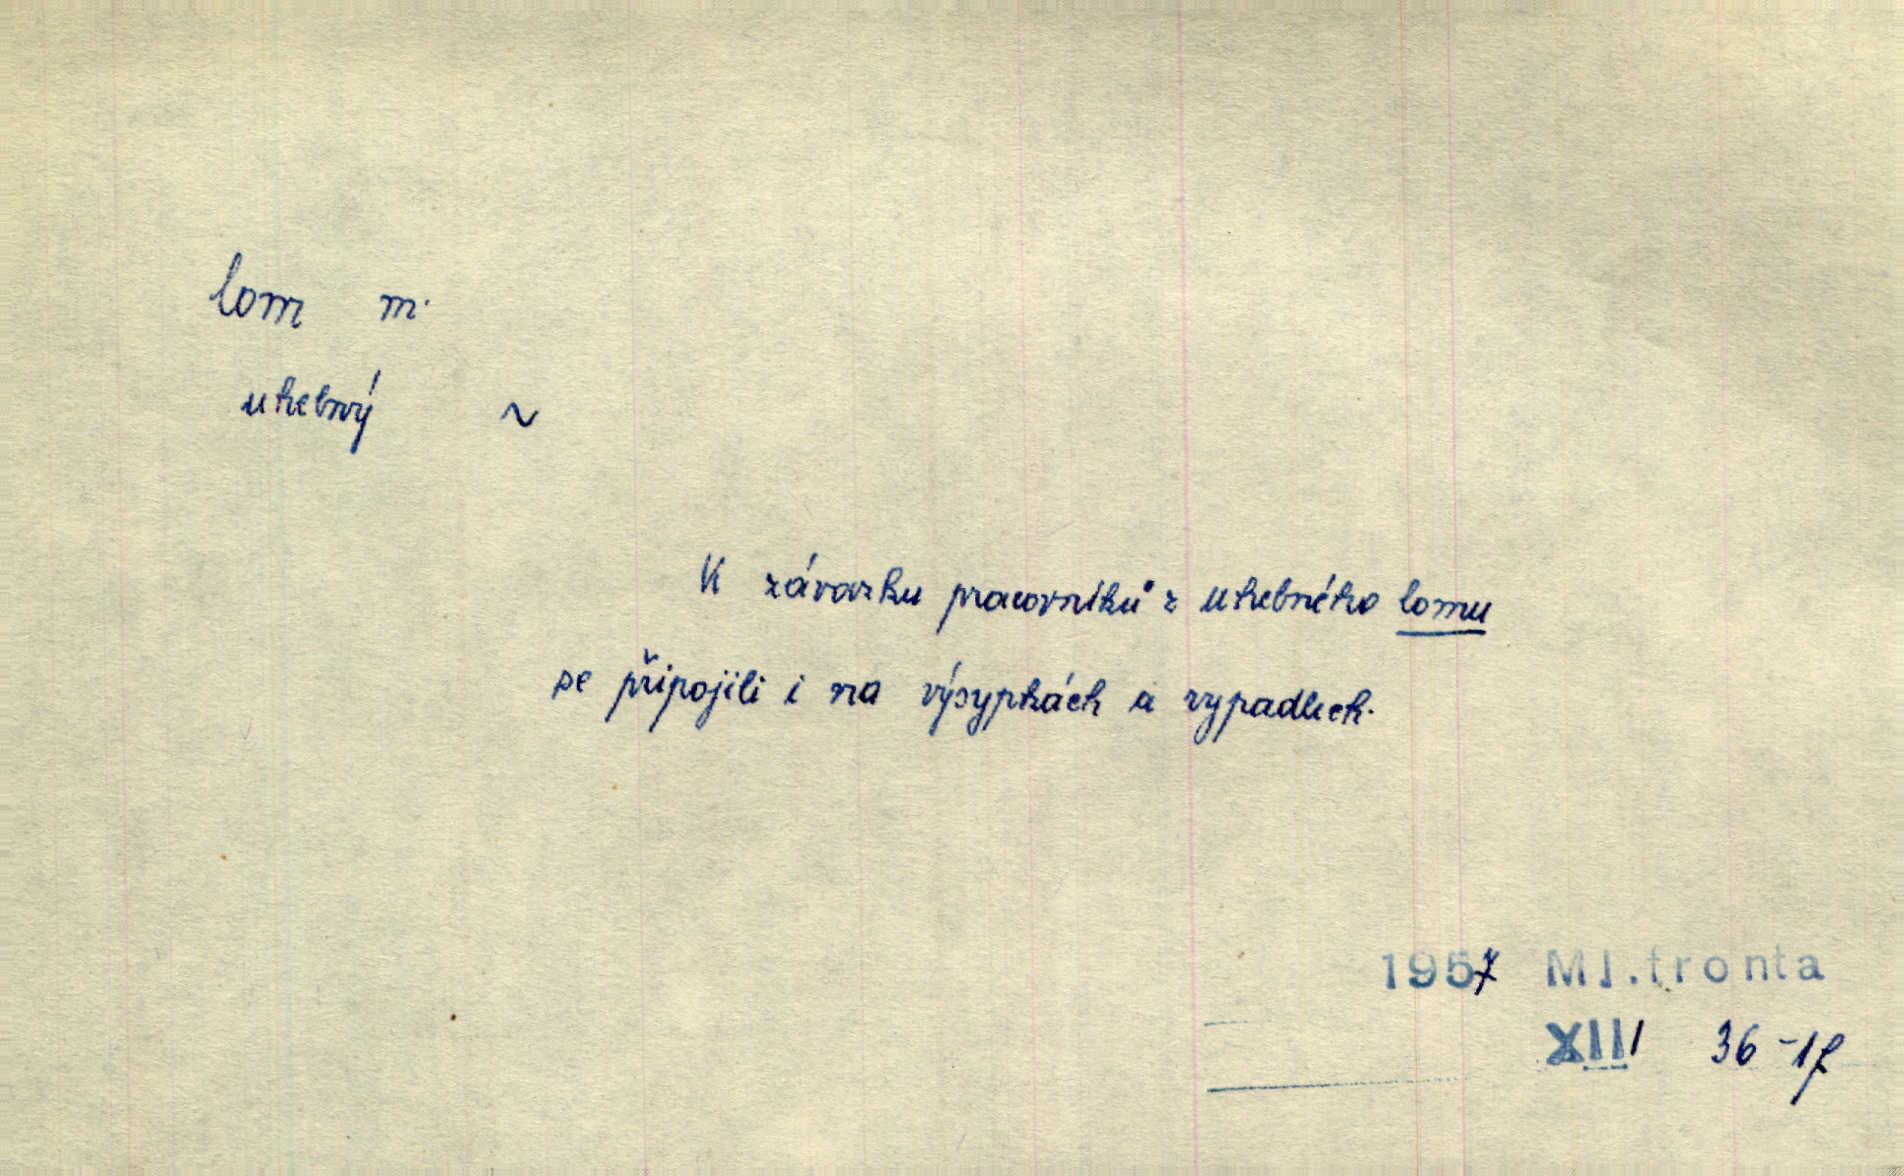 lom m.
uhelný ~
K závazku pracovníků z uhelného lomu
se připojili i na výsypkách a rypadlech.
1957 Ml.fronta
XIII 36 -1f